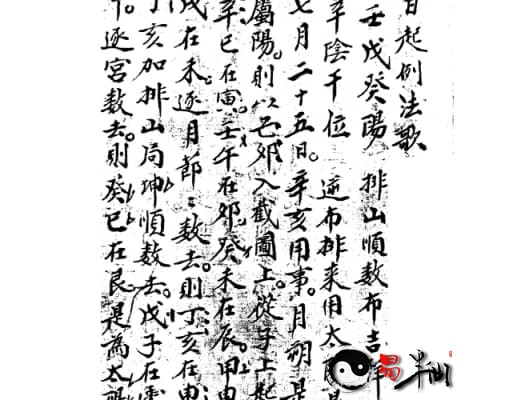 日起例法歌
壬戊癸陽 排山順数布吉
辛陰千位 逆布排来用太
七月二十五日。辛亥用事。月朔是
屬陽。則以己卯入截圖上。從子上起
辛巳在寅。壬午在卯。癸未在辰。甲申
戌在未。逐月節〻数去。則丁亥在申
丁亥加排山局坤順数去。戊子在
下。逐宫数去。則癸巳在艮。是為太陽
易